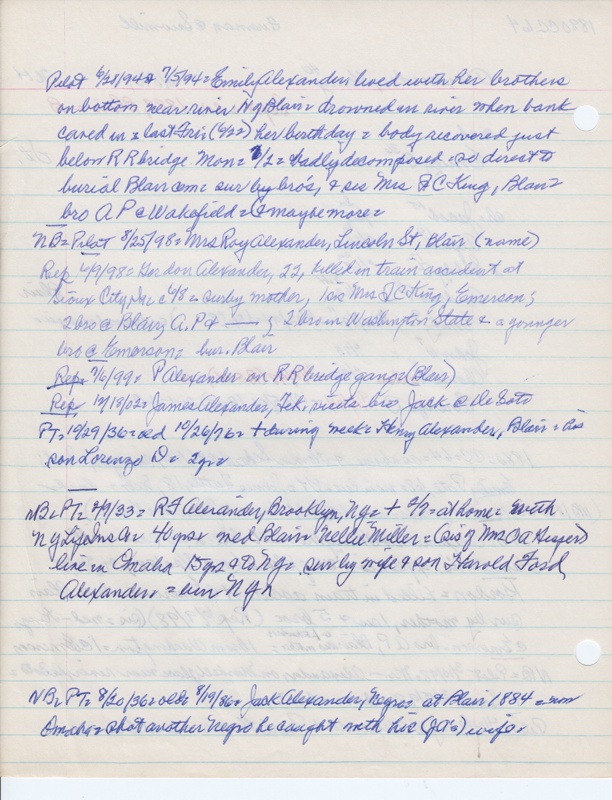 Pilot 6/28/94 & 7/5/94 = Emily Alexander lived with her brothers
on bottom near river N of Blair = drowned in river when bank
caved in = last Fri (6/22) her birthday = body recovered just
below RR bridge Mon = 7/2 = badly decomposed = so direct to
burial Blair cem = sur by bro's, & sis Mrs J C King, Blair =
bro A P @ Wakefield = (& maybe more =
NB = Pilot 8/25/98 = Mrs Roy Alexander, Lincoln St, Blair (name)
Rep 4/9/98 = Gordon Alexander, 22, killed in train accident at
Sioux City, Ia @ 4/8 = sur by mother, 1 sis Mrs J C King, Emerson;
2 bro @ Blair, A. P & —— ; 2 bro in Washington State & a younger
bro @ Emerson = bur. Blair
Rep = 7/6/99 = P Alexander on RR bridge gang = (Blair)
Rep, 12/18/02 = James Alexander, Tek. visits bro Jack @ De Soto
PT = 10/29/36 = old 10/26/76 = + during week = Henry Alexander, Blair =
son Lorenzo D = 2 yr =
NB = PT = 2/9/33 = R F Alexander, Brooklyn, Ny = + 2/7 = at home = with
N Y Life Ins Co = 40 yrs = med Blair Nellie Miller = (sis of Mrs
live in Omaha 15 yrs & to Ny = sur by wife & son Harold Ford
Alexander = bur N Y
NB = PT = 8/20/36 = old = 8/19/86 = Jack Alexander, Negro = at Blair 1884 = now
Omaha = shot another Negro he caught with his (JA's) wife =